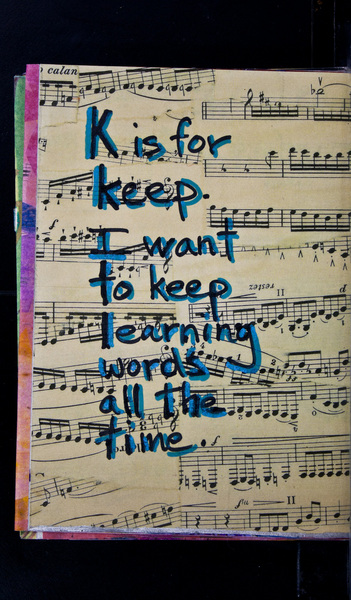 calan
K is for
keep.
I want
to keep
restez
learning
words
all the
time.
II
II